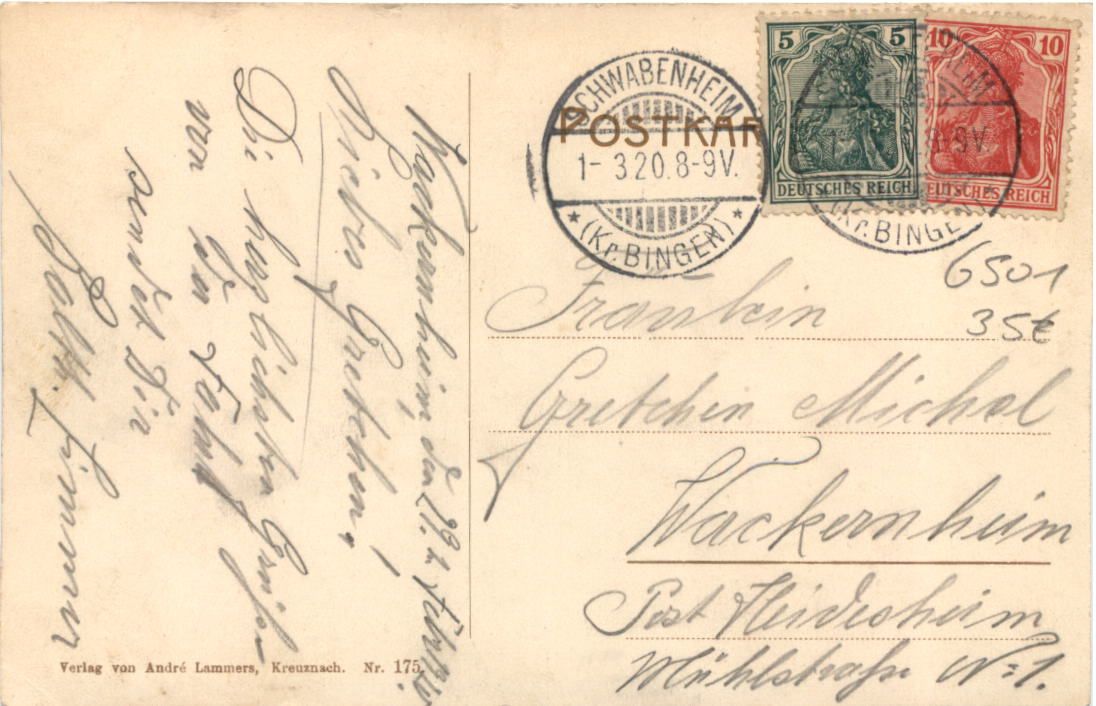 POSTKAR
SCHWABENHEIM
1-3.20.8-9V.
* (Kr. BINGEN) *
5 5
DEUTSCHES REICH
10 10
DEUTSCHES REICH
8-9V.
(Kr. BINGE
6501
35€
Fräulein
Gretchen Michel
Wackernheim
Post Heidesheim
Mühlstraße No 1.
Wackernheim, den 29.
Liebes Gretchen!
Die herzlichsten Grüße
von der Fahrt
sendet Dir
Verlag von André Lammers, Kreuznach. Nr. 175.